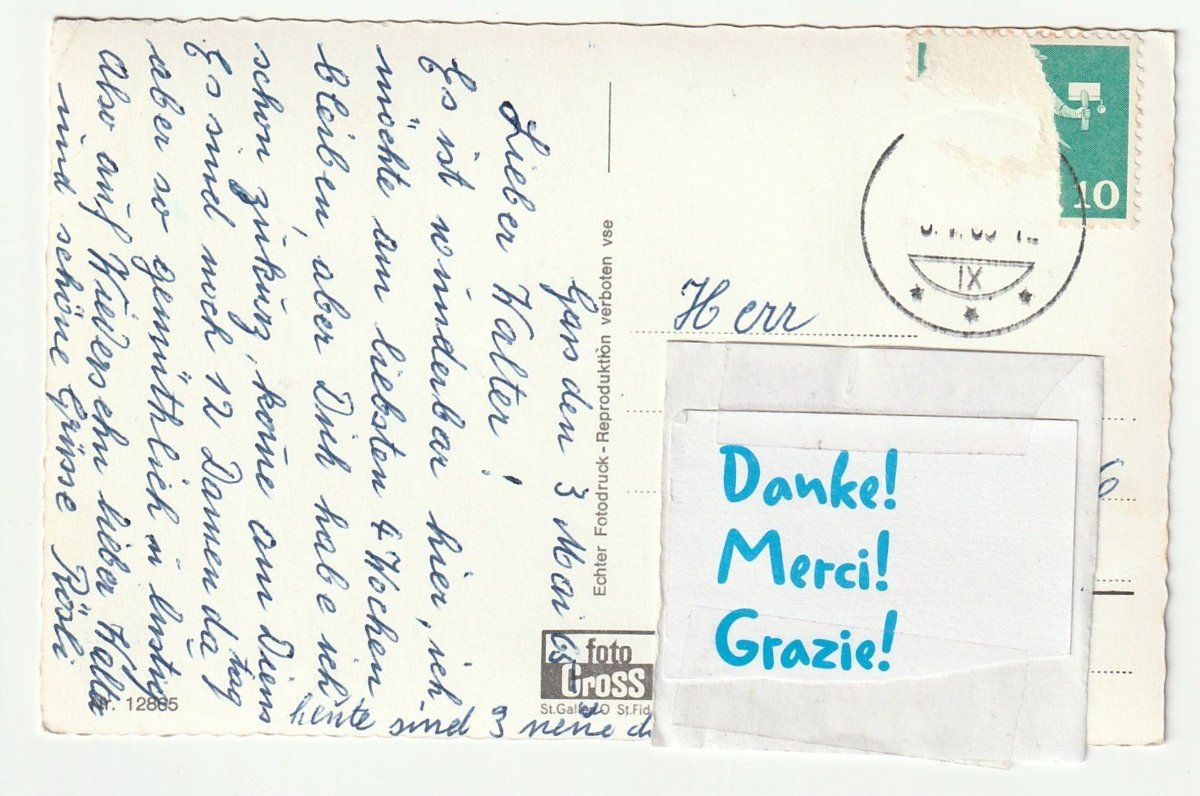 Gais den 3 Mai 65
Lieber Walter!
Es ist wunderbar hier, ich
möchte am liebsten 4 Wochen
bleiben, aber Dich habe ich
schon zu kurz, kome am Diens
tag
Es sind noch 12 Damen da
aber so gemüthlich u lustig
also auf Wiersehn lieber Walter
und schöne Grüsse Rösli
heute sind 3 neue
Nr. 12885
Echter Fotodruck - Reproduktion verboten vse
foto
Gross
St.Gallen O St.Fid
10
IX
Herr
6
Danke!
Merci!
Grazie!